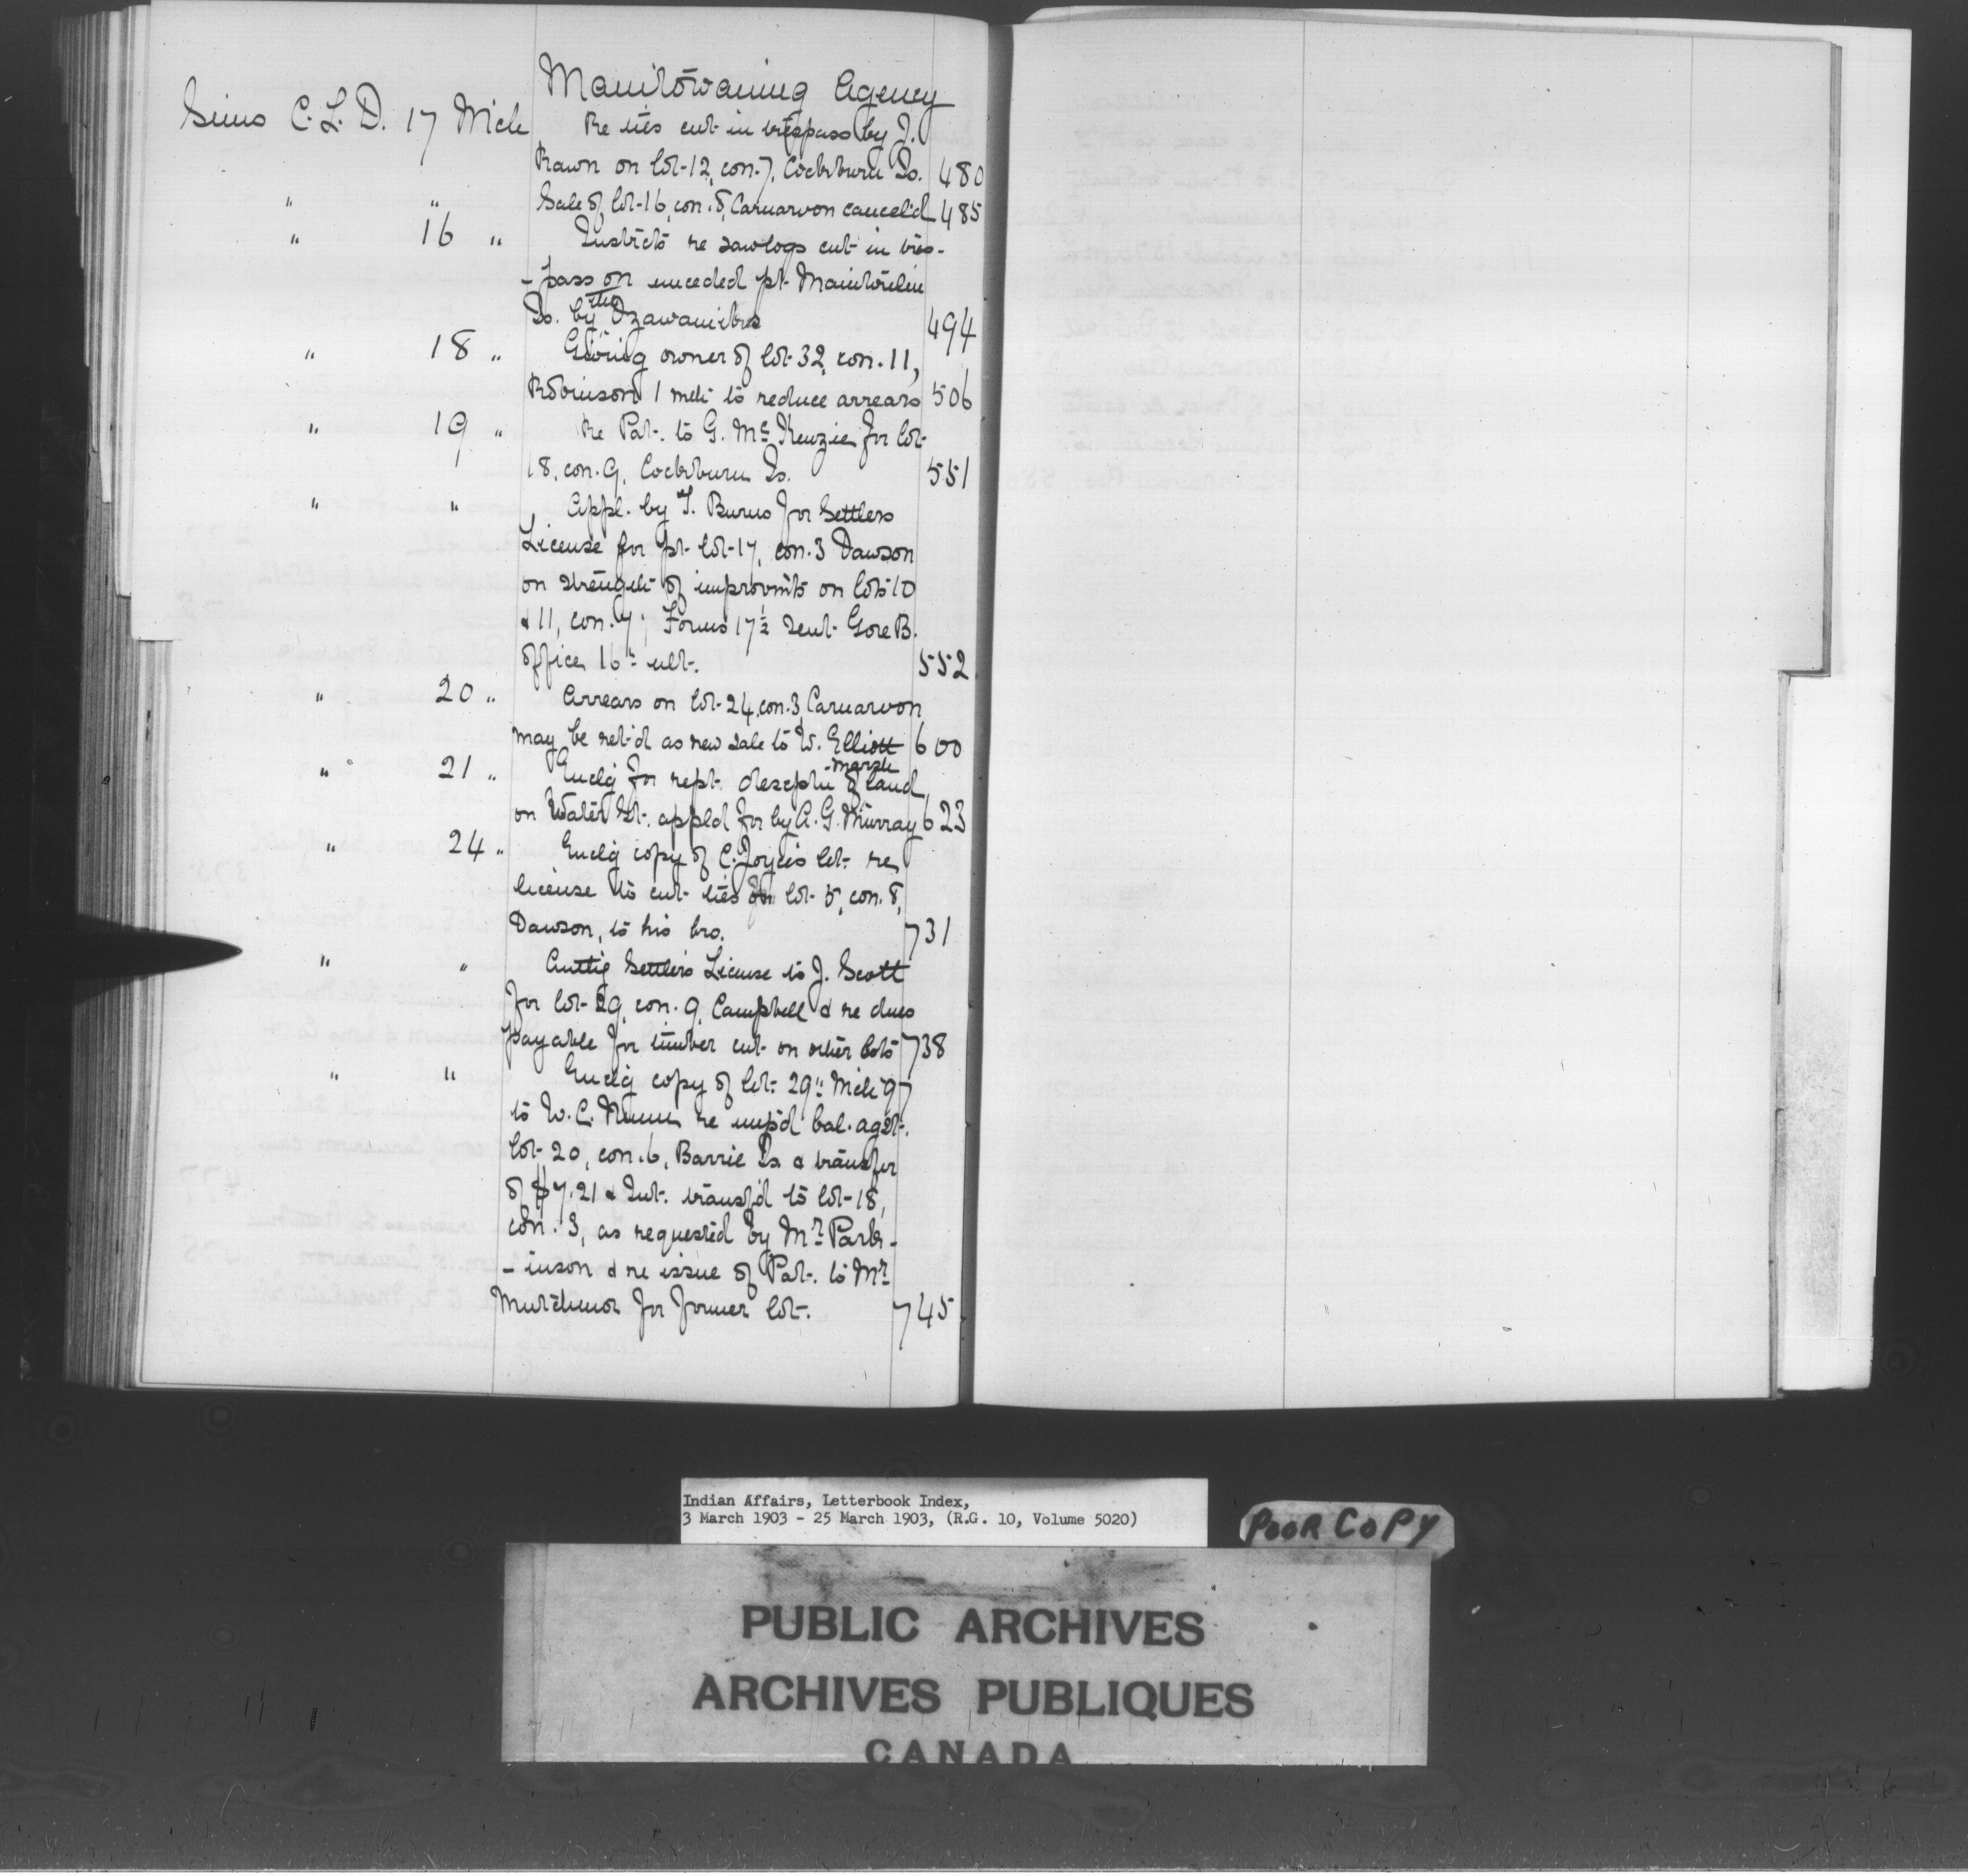 Manitowaning Agency
Sims C. L. D. 17 Mch Re ties cut in trespass by J.
Rawn on lot 12, con. 7, Cockburn Is. 480
" " Sale of lot 16, con. 8, Carnarvon cancel'd 485
" 16 " Instrcts re sawlogs cut in tres-
- pass on unceded pt Manitoulin
Is. by the Ozawamicks 494
" 18 " Giving owner of lot 32, con. 11,
Robinson 1 mth to reduce arrears 506
" 19 " Re Pat. to G. McKenzie for lot
18, con. 9, Cockburn Is. 551
" " Appl. by T. Burns for Settlers
License for pt lot 17, con. 3 Dawson
on strength of improvmts on lots 10
& 11, con. 7; Forms 17½ sent Gore B.
office 16th ult. 552
" 20 " Arrears on lot 24, con. 3, Carnarvon
may be ret'd as new sale to W. Elliott 600
" 21 " Enclg for rept. descptn of marsh land
on Water St. appl'd for by A. G. Murray 623
" 24 " Enclg copy of C. Joyce's let. re
license to cut ties on lot 5, con. 8,
Dawson, to his bro. 731
" " Auttig Settler's License to J. Scott
for lot 29, con. 9, Campbell & re dues
payable for timber cut on other lots 738
" " Enclg copy of let. 29th Mch 97
to W. C. re unp'd bal. agst.
lot 20, con. 6, Barrie Is & transfer
of $7.21 & Int. transf'd to lot 18,
con. 3, as requested by Mr. Park-
- inson & re issue of Pat. to Mr.
Mutchmor for former lot. 745
Indian Affairs, Letterbook Index,
3 March 1903 - 25 March 1903, (R.G. 10, Volume 5020)
POOR COPY
PUBLIC ARCHIVES
ARCHIVES PUBLIQUES
CANADA